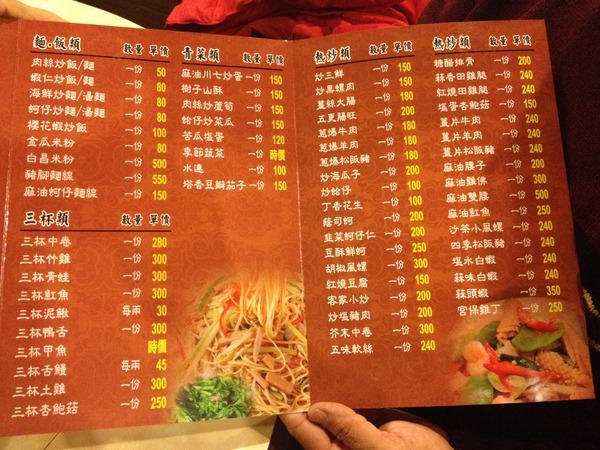 麵.飯類 數量 單價
肉絲炒飯/麵 一份 50
蝦仁炒飯/麵 一份 80
海鮮炒麵/湯麵 一份 80
蚵仔炒麵/湯麵 一份 80
櫻花蝦炒飯 一份 100
金瓜米粉 一份 80
白昌米粉 一份 500
豬腳麵線 一份 550
麻油蚵仔麵線 一份 150
三杯類 數量 單價
三杯中卷 一份 280
三杯竹雞 一份 300
三杯青蛙 一份 300
三杯魟魚 一份 300
三杯泥鰍 每兩 30
三杯鴨舌 一份 300
三杯甲魚 時價
三杯舌鰻 每兩 45
三杯土雞 一份 300
三杯杏鮑菇 一份 250
青菜類 數量 單價
麻油川七炒蛋 一份 150
樹子山酥 一份 150
肉絲炒蘆筍 一份 150
蛤仔炒菜瓜 一份 150
苦瓜塩蛋 一份 120
季節蔬菜 一份 時價
水蓮 一份 100
塔香豆瓣茄子 一份 150
熱炒類 數量 單價
炒三鮮 一份 150
炒黑螺肉 一份 150
薑絲大腸 一份 180
五更腸旺 一份 200
蔥爆牛肉 一份 200
蔥爆羊肉 一份 200
蔥爆松阪豬 一份 200
炒海瓜子 一份 200
炒蛤仔 一份 100
丁香花生 一份 100
蔭司蚵 一份 200
韭菜蚵仔仁 一份 200
豆酥鮮蚵 一份 250
胡椒風螺 一份 300
紅燒豆腐 一份 150
客家小炒 一份 200
炒塩豬肉 一份 200
芥末中卷 一份 300
五味軟絲 一份 240
熱炒類 數量 單價
糖醋排骨 一份 200
蒜香田雞腿 一份 240
紅燒田雞腿 一份 240
塩蛋杏鮑菇 一份 150
薑片牛肉 一份 240
薑片羊肉 一份 240
薑片松阪豬 一份 240
麻油腰子 一份 200
麻油雞佛 一份 300
麻油雙腰 一份 500
麻油魟魚 一份 250
沙茶小風螺 一份 240
四季松阪豬 一份 240
塩水白蝦 一份 240
蒜味白蝦 一份 240
蒜頭蝦 一份 350
宮保雞丁 一份 250